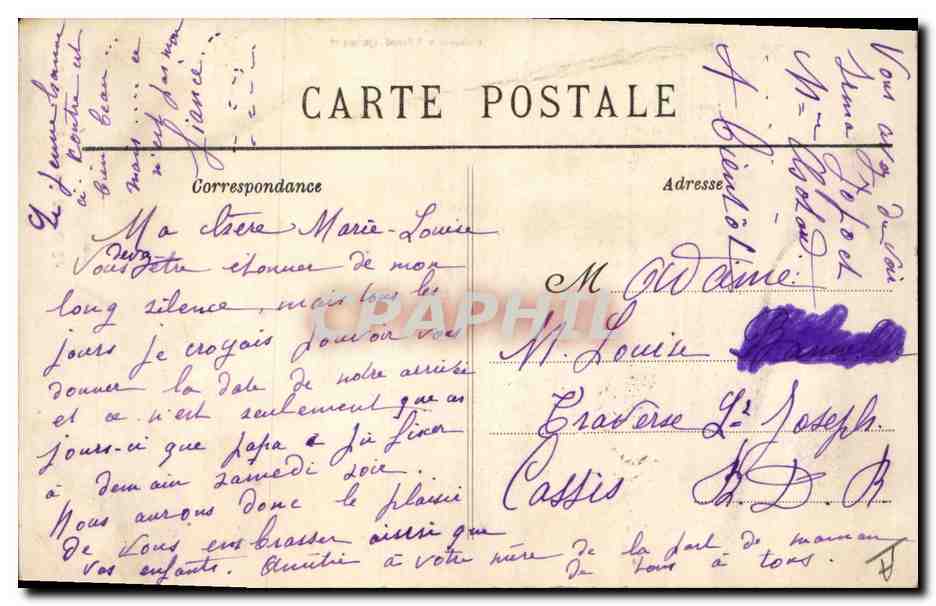 CARTE POSTALE
Correspondance
Adresse
Ma chère Marie-Louise
Vous devez être étonner de mon
long silence, mais tous les
jours je croyais pouvoir vous
donner la date de notre arrivée
et ce n'est seulement que ces
jours-ci que papa a pu fixer
à demain samedi soir.
Nous aurons donc le plaisir
de vous embrasser ainsi que
vos enfants. Amitié à votre mère de la part de maman
de tous à tous.
Madame
M. Louise
Traverse St Joseph.
Cassis B. D. R
Le jeune homme
ci contre est
bien beau...
mais.... ce
n'est pas mon
fiancé.
Vous avez du voir
A bientôt
CPAPHIL